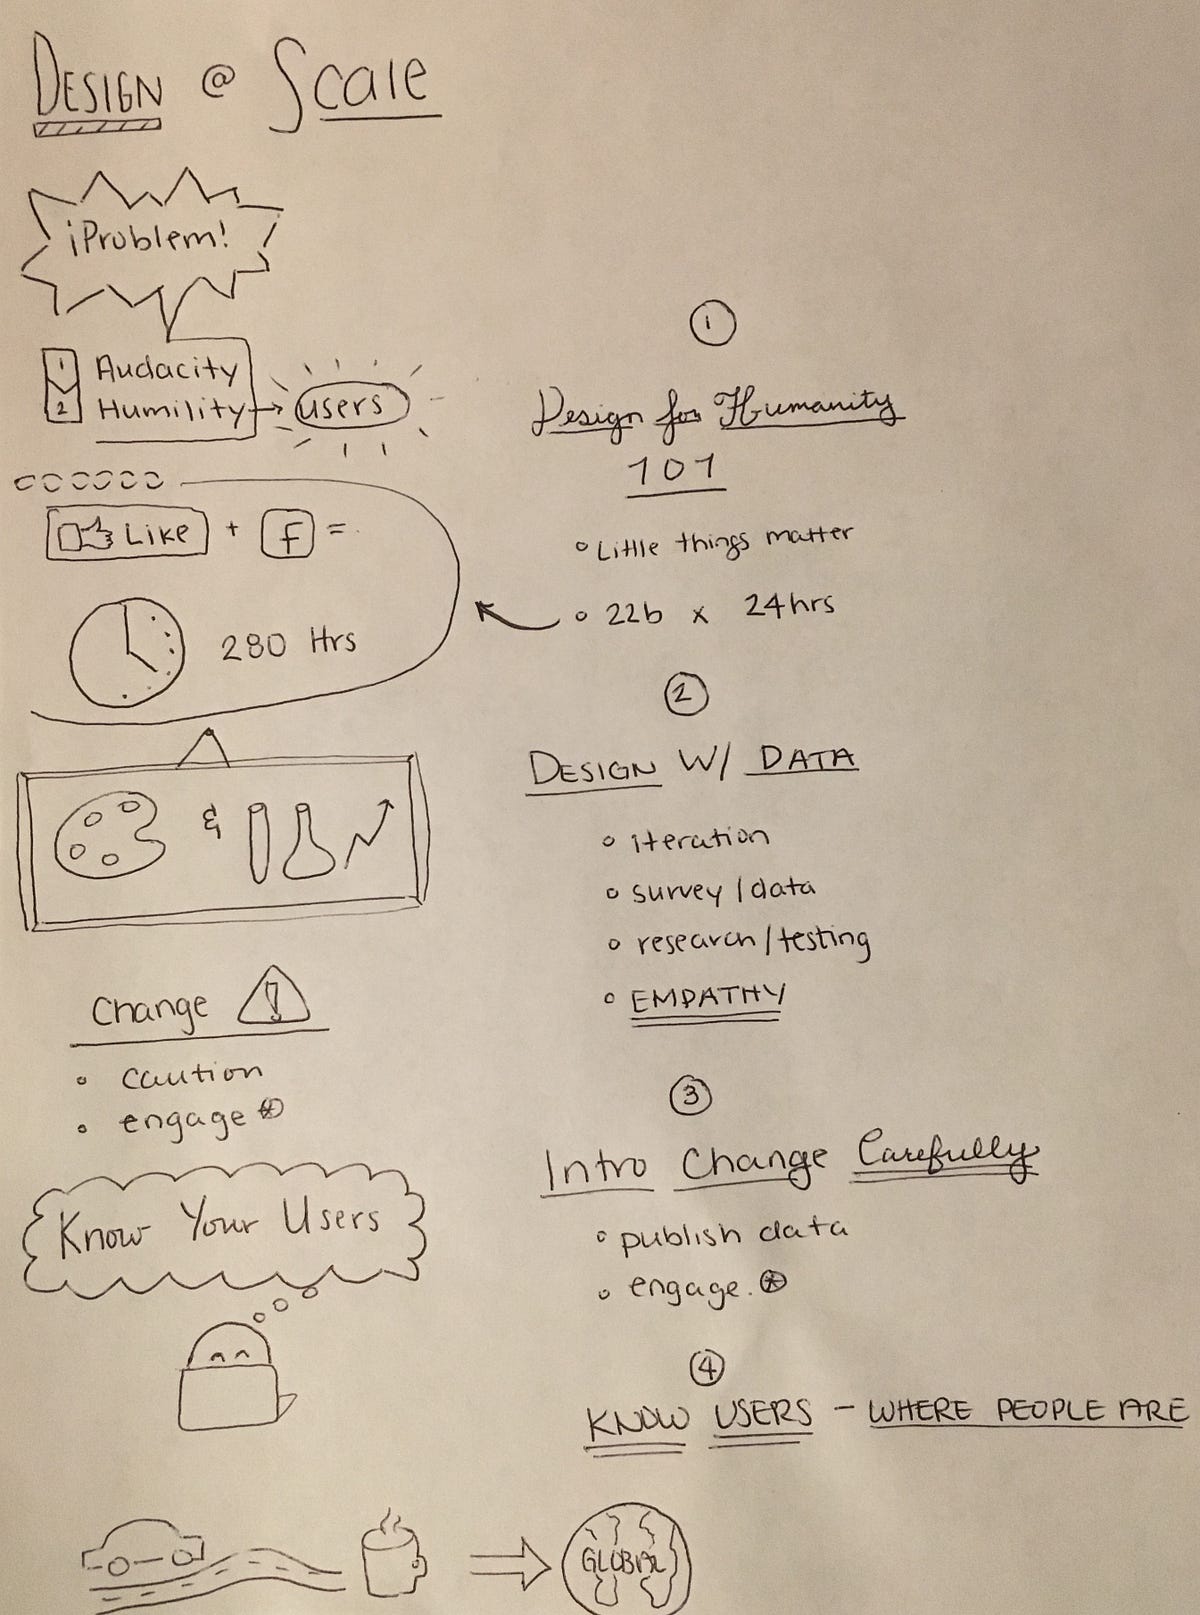 DESIGN @ Scale
¡Problem!
1 Audacity
2 Humility → users
Like + f =
280 Hrs
&
Change !
• caution
• engage *
Know Your Users
1
Design for Humanity
101
• Little things matter
• 22b x 24hrs
2
DESIGN W/ DATA
• iteration
• survey / data
• research / testing
• EMPATHY
3
Intro Change Carefully
• publish data
• engage. *
4
KNOW USERS - WHERE PEOPLE ARE
GLOBAL